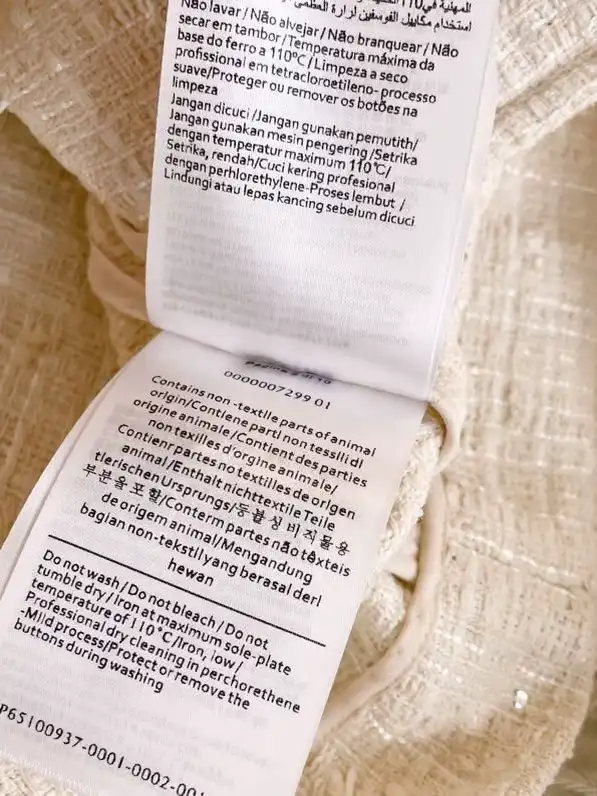 استخدام مكابيل الفوسفين لرارة العظمى
Não lavar / Não alvejar / Não branquear / Não
secar em tambor/Temperatura máxima da
base do ferro a 110°C/Limpeza a seco
profissional em tetracloroetileno- processo
suave/Proteger ou remover os botões na
limpeza
Jangan dicuci /Jangan gunakan pemutith/
Jangan gunakan mesin pengering /Setrika
dengan temperatur maximum 110℃/
Setrika, rendah/Cuci kering profesional
dengan perhlorethylene-Proses lembut /
Lindungi atau lepas kancing sebelum dicuci
0000007299 01
Contains non -textlle parts of animal
orlgln/Contlene partl non tesslli dl
origine animale /Contient des parties
non texilles d'orgine animale/
Contienr partes no textiles de origen
animal/Enthalt nichttextile Teile
tlerischen Ursprungs/동불성비직물용
부분율포활/Conterm partes não têxteis
de origem animal/Mengandung
baglan non-tekstil yang berasal derl
hewan
Do not wash / Do not bleach / Do not
tumble dry / Iron at maximum sole-plate
temperature of 110°C/Iron, low /
Professional dry cleaning in perchorethene
-Mild process/Protect or remove the
buttons during washing
P65100937-0001-0002-001